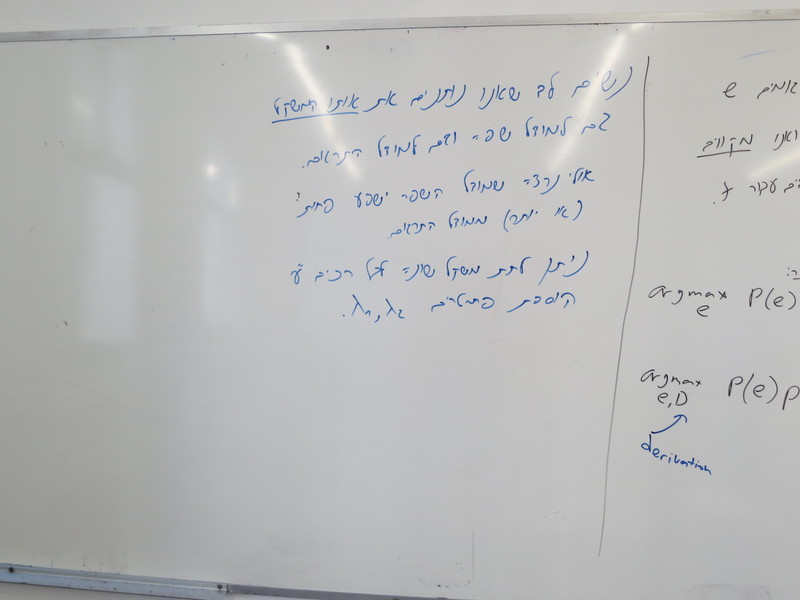 נשים לב שאנו נותנים את אותו המשקל
גם למודל שפה וגם למודל התרגום.
אולי נרצה שמודל השפה ישפיע פחות
(או יותר) ממודל התרגום.
ניתן לתת משקל שונה לכל רכיב ע"י
הוספת פרמטרים
e
ואנו מקווים
עבור f.
argmax P(e)
e
argmax P(e) p
e,D
derivation